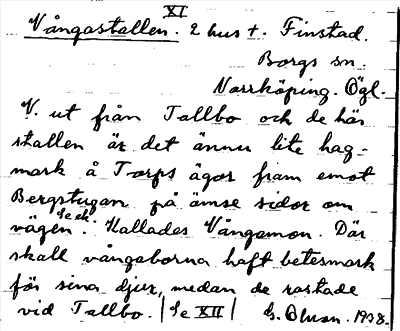 XI
Vångastallen. 2 hus †. Finstad.
Borgs sn.
Norrköping. Ögl.
V. ut från Tallbo och de här
stallen är det ännu lite hag-
mark å Torps ägor fram emot
Bergstugan på ämse sidor om
vägen. Se ek. Kallades Vångamon. Där
skall vångaborna haft betesmark
för sina djur, medan de rastade
vid Tallbo. | Se XII | G. Olson. 1938.